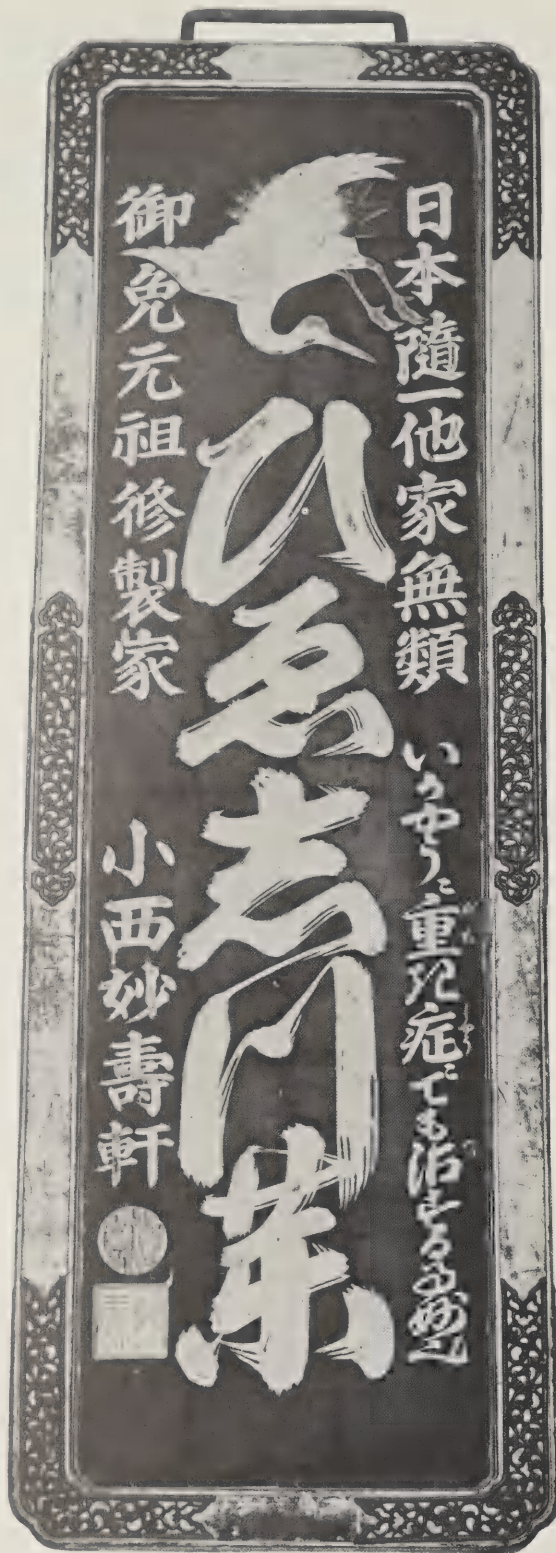 日本隨一他家無類 いかやうニ重き症ニても治する事妙也
ひゑ志川薬
御免元祖修製家 小西妙壽軒